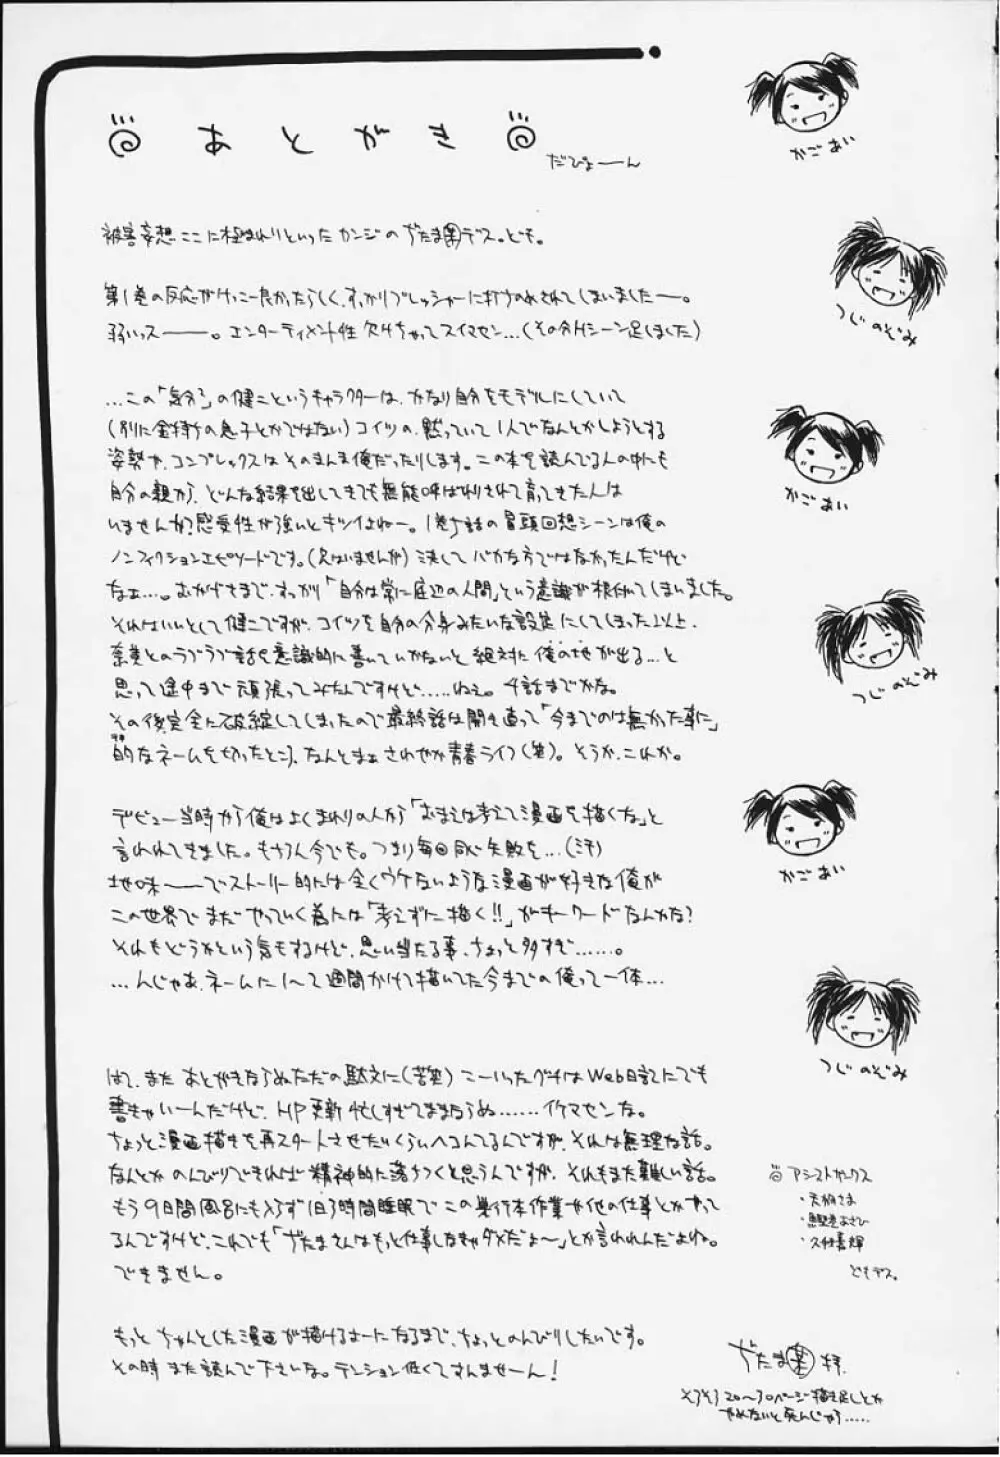 あとがき
だぴょーん
被害妄想ここに極まれりといったカンジのぢたま㊚デス。ども。
第1巻の反応がけっこー良かったらしく、すっかりプレッシャーに打ちのめされてしまいましたー。
弱いっスー。エンターティメント性欠けちゃってスイマセン…(その分Hシーン足しました)
…この「気分2」の健二というキャラクターは、かなり自分をモデルにしていて
(別に金持ちの息子とかではない)コイツの、黙っていて1人でなんとかしようとする
姿勢や、コンプレックスはそのまんま俺だったりします。この本を読んでる人の中にも
自分の親から、どんな結果を出してきても無能呼ばわりされて育ってきた人は
いませんか?感受性が強いとキツイよねー。1巻5話の冒頭回想シーンは俺の
ノンフィクションエピソードです。(兄はいませんが)決してバカな方ではなかったんだけど
なぁ…。おかげさまで、すっかり「自分は常に底辺の人間」という意識が根付いてしまいました。
それはいいとして健二ですが、コイツを自分の分身みたいな設定にしてしまった以上、
奈美とのラブラブ話を意識的に書いていかないと絶対に俺の地が出る…と
思って途中まで頑張ってみたんですけど……ねぇ。4話までかな。
その後完全に破綻してしまったので最終話は開き直って「今までのは無かった事に」
的なネームを切ったところ、なんとまぁさわやか青春ライフ(笑)。そうか、これか。
デビュー当時から俺はよくまわりの人から「おまえは考えて漫画を描くな」と
言われてきました。もちろん今でも。つまり毎回同じ失敗を…(汗)
地味ーでストーリー的には全くウケないような漫画が好きな俺が
この世界でまだやっていく為には「考えずに描く!!」がキーワードなんかな?
それもどうかという気もするけど、思い当たる事、ちょっと多すぎ……。
…んじゃあ、ネームに1〜2週間かけて描いてた今までの俺って一体…
はて、またあとがきならぬただの駄文に(苦笑)こーいったグチはWeb日記にでも
書きゃいーんだけど、HP更新忙しすぎてままならぬ……イケマセンな。
ちょっと漫画描きを再スタートさせたいくらいヘコんでるんですが、それは無理な話。
なんとかのんびりできれば精神的に落ちつくと思うんですが、それもまた難しい話。
もう9日間風呂にも入らず1日3時間睡眠でこの単行本作業や他の仕事とかやって
るんですけど、これでも「ぢたまさんはもっと仕事しなきゃダメだよ〜」とか言われんだよね。
できません。
もっとちゃんとした漫画が描けるよーになるまで、ちょっとのんびりしたいです。
その時また読んで下さいな。テンション低くてすんませーん!
かごあい
つじのぞみ
かごあい
つじのぞみ
かごあい
つじのぞみ
アシストサンクス
どもデス。
ぢたま 拝
そうそう20〜30ページ描き足しとか
やめないと死んじゃう……